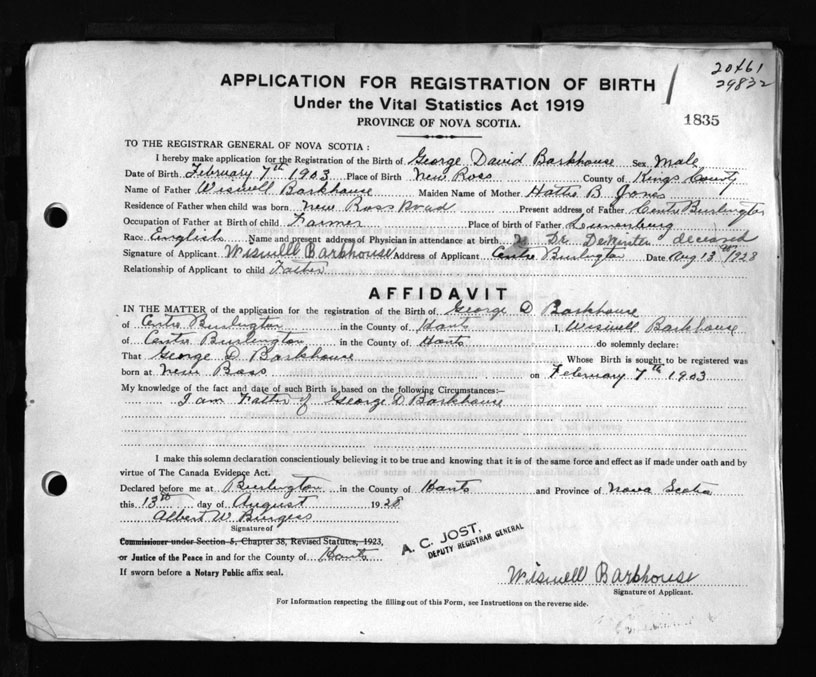 20461
29832
APPLICATION FOR REGISTRATION OF BIRTH
Under the Vital Statistics Act 1919
PROVINCE OF NOVA SCOTIA.
1835
TO THE REGISTRAR GENERAL OF NOVA SCOTIA:
I hereby make application for the Registration of the Birth of George David Barkhouse Sex Male
Date of Birth February 7th 1903 Place of Birth New Ross County of Kings County
Name of Father Wiswell Barkhouse Maiden Name of Mother Hattie B Jones
Residence of Father when child was born New Ross Road Present address of Father Centre Burlington
Occupation of Father at Birth of child Farmer Place of birth of Father Lunenburg
Race English Name and present address of Physician in attendance at birth Dr. deceased
Signature of Applicant Wiswell Barkhouse Address of Applicant Centre Burlington Date Aug 13th 1928
Relationship of Applicant to child Father
AFFIDAVIT
IN THE MATTER of the application for the registration of the Birth of George D Barkhouse
of Centre Burlington in the County of Hants I, Wiswell Barkhouse
of Centre Burlington in the County of Hants do solemnly declare:
That George D. Barkhouse Whose Birth is sought to be registered was
born at New Ross on February 7th 1903
My knowledge of the fact and date of such Birth is based on the following Circumstances:—
I am Father of George D Barkhouse
I make this solemn declaration conscientiously believing it to be true and knowing that it is of the same force and effect as if made under oath and by
virtue of The Canada Evidence Act.
Declared before me at Burlington in the County of Hants and Province of Nova Scotia
this 13th day of August 1928
Albert W Burgess
Signature of
Commissioner under Section 5, Chapter 38, Revised Statutes, 1923,
or Justice of the Peace in and for the County of Hants
If sworn before a Notary Public affix seal.
A. C. JOST,
DEPUTY REGISTRAR GENERAL
Wiswell Barkhouse
Signature of Applicant.
For Information respecting the filling out of this Form, see Instructions on the reverse side.